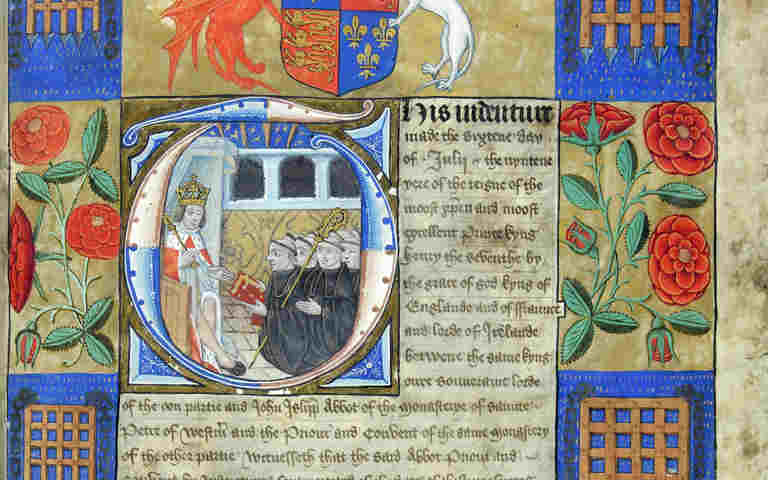 This indenture
made the sixtene day
of Julij the nyntene
yere of the reigne of the
moost xpen and moost
excellent Prince kyng
henry the seuenthe by
the grace of god kyng of
Englande and of ffraunce
and lorde of Irelande
betwene the same kyng
oure soueraint lorde
of the oon partie and John Islipp Abbot of the monasterye of Sainte
Petre of Westm and the Priour and Convent of the same monastery
of the other partie Witnesseth that the said Abbot Priour and